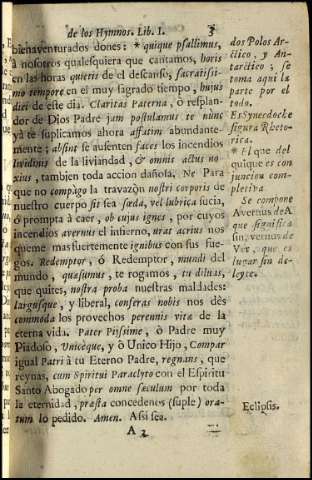 de los Hymnos. Lib. I. 3
bienaventurados dones: * quique psallimus,
à nosotros qualesquiera que cantamos, horis
en las horas quietis de el descanso, sacratissi-
mo tempore en el muy sagrado tiempo, hujus
diei de este dia. Claritas Paterna, ò resplan-
dor de Dios Padre jam postulamus te nùnc
yà te suplicamos ahora affatim abundante-
mente; absint se ausenten faces los incendios
lividinis de la liviandad, & omnis actus no-
xius, tambien toda accion dañosa. Ne Para
que no compàgo la travazòn nostri corporis de
nuestro cuerpo sit sea fœda, vel lubrica sucia,
ò prompta à caer, ob cujus ignes, por cuyos
incendios avernus el infierno, urat acrius nos
queme mas fuertemente ignibus con sus fue-
gos. Redemptor, ò Redemptor, mundi del
mundo, quæsumus, te rogamos, tu diluas,
que quites, nostra proba nuestras maldades:
largusque, y liberal, conferas nobis nos dès
commoda los provechos perennis vitæ de la
eterna vida. Pater Piissime, ò Padre muy
Piadoso, Unicèque, y ò Unico Hijo, Compar
igual Patri à tu Eterno Padre, regnans, que
reynas, cum Spiritui Paraclyto con el Espiritu
Santo Abogado per omne sæculum por toda
la eternidad, præsta concedenos (suple) ora-
tum lo pedido. Amen. Assi sea.
A 2
dos Polos Ar-
ctico, y An-
tarctico; se
toma aqui la
parte por el
todo.
Es Synecdoche
figura Rheto-
rica.
* El que del
quique es con
juncion com-
pletiva
Se compone
Avernus de A
que significa
sin, vernus de
Ver, que es
lugar sin de-
leyte.
Eclipsis.